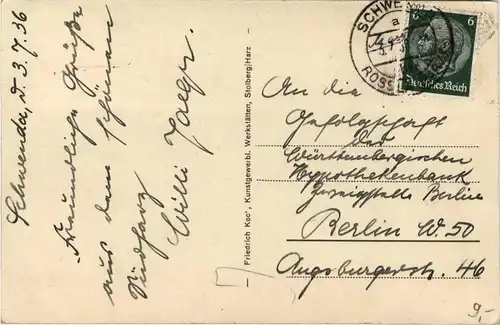 Schwenda, d. 3.7.36
Freundliche Grüße
aus dem schönen
Südharz
Willi Jaeger.
Friedrich Koch, Kunstgewerbl. Werkstätten, Stolberg/Harz
SCHWE
a
3.7.3
ROSSL
6 6
Deutsches Reich
An die
Gefolgschaft
der
Württembergischen
Hypothekenbank
Zweigstelle Berlin
Berlin W. 50
Augsburgerstr. 46
9,-